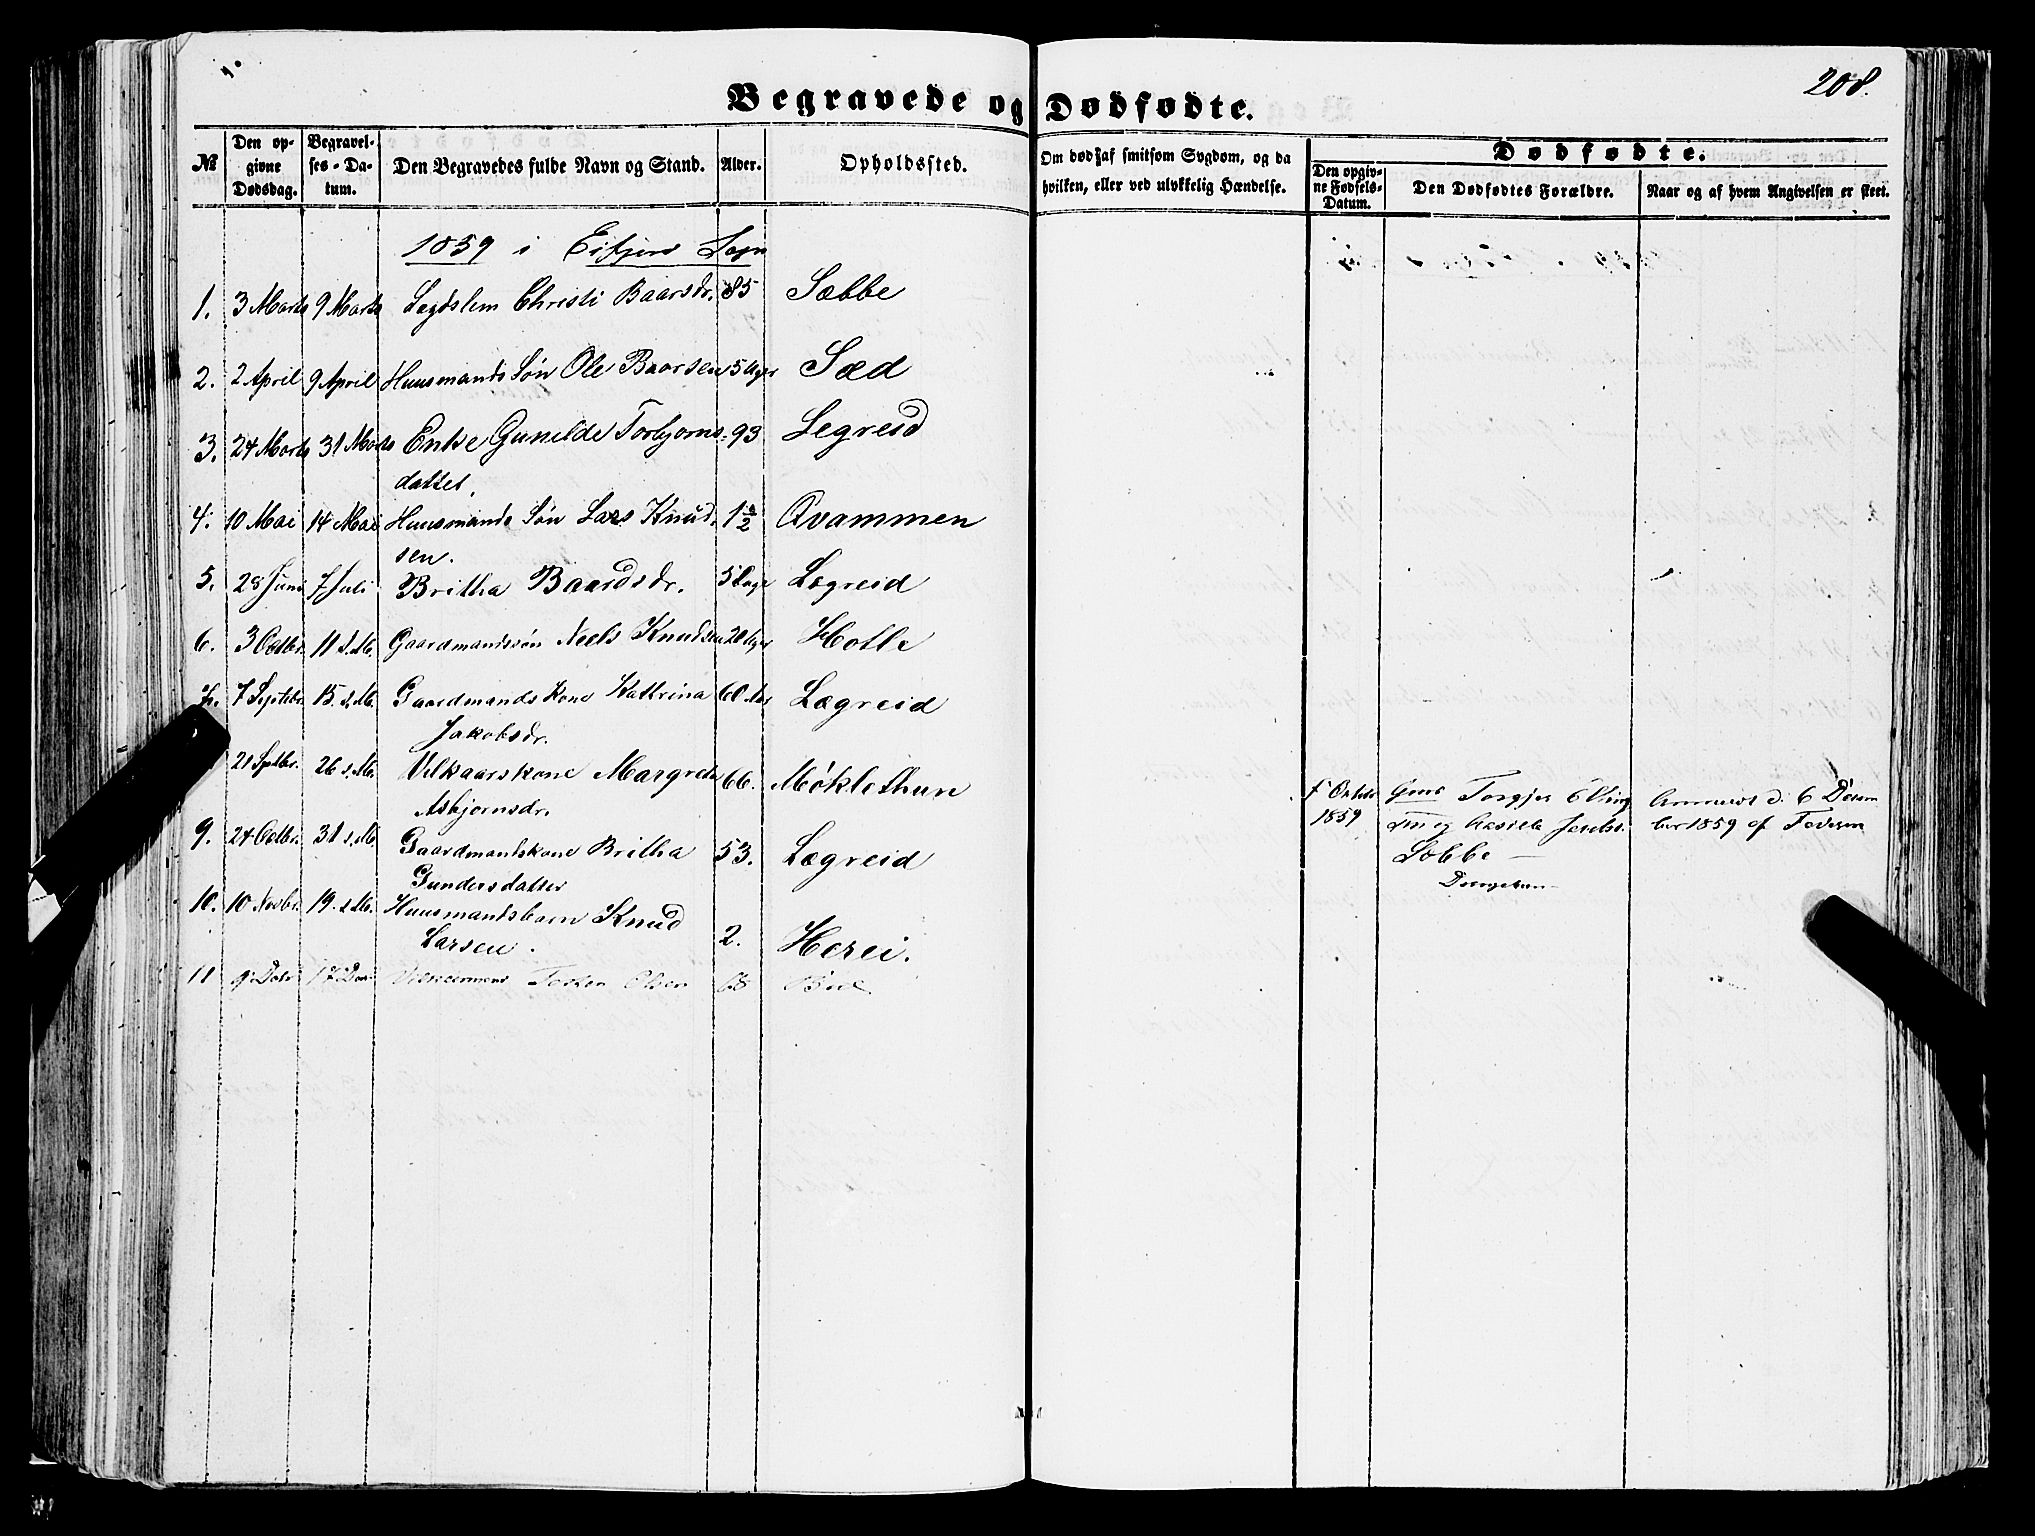 208.
Begravede og Dødfødte.
№
Den opgivne Dødsdag.
Begravelses-Datum.
Den Begravedes fulde Navn og Stand.
Alder.
Opholdssted.
Om død af smitsom Sygdom, og da hvilken, eller ved ulykkelig Hændelse.
Dødfødte.
Den opgivne Fødsels-Datum.
Den Dødfødtes Forældre.
Naar og af hvem Angivelsen er skeet.
1859 i Eifjord Sogn
1. 3 Marts 9 Marts Legdslem Christi Baarsdr. 85 Sæbbe
2. 2 April 9 April Huusmands Søn Ole Baarsen 5 Uger Sæd
3. 24 Marts 31 Marts Enke Gunilde Torbjorns- 93 Legreid
datter.
4. 10 Mai 14 Mai Huusmands Søn Lars Knud- 1 ½ Qvammen
sen.
5. 28 Juni 7 Juli Britha Baardsdr. 5 Dage Lægreid
6. 3 Octbr. 11 s.M. Gaardmandssøn Neels Knudsen 20 Uger Hotle
7. 7 Septbr. 15. s.M. Gaardmands Kone Kathrina 60 Aar Lægreid
Jakobsdr.
21 Septbr. 26 s.M. Vilkaarskone Margreta 66. Møklethun
Asbjornsdr.
9. 24 Octbr. 31 s.M. Gaardmandskone Britha 53. Lægreid
Gundersdatter
10. 10 Novbr. 19. s.M. Huusmandsbarn Knud
Larsen. 2. Herei.
11 9 Decbr 17 Dec Vilkaarmand Torken Olsen 68 Bue
1859
Torgjer Elling
sen og
Sæbbe
6 Decem
ber 1859 af Faderen